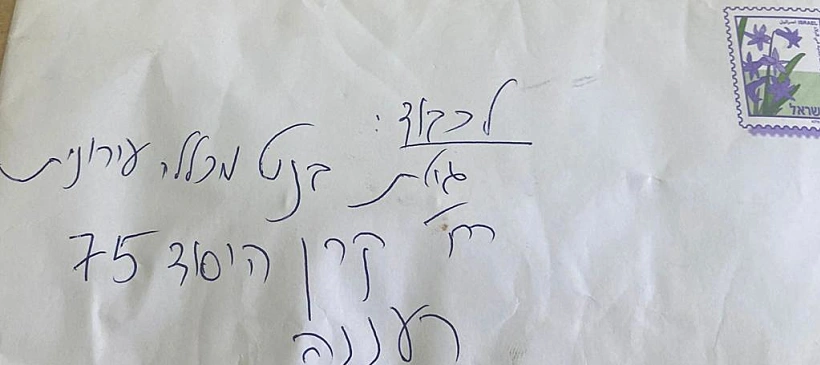 ISRAEL
ישראל
לכבוד:
גילת בנט מכללה עירונית
רח' קרן היסוד 75
רעננה